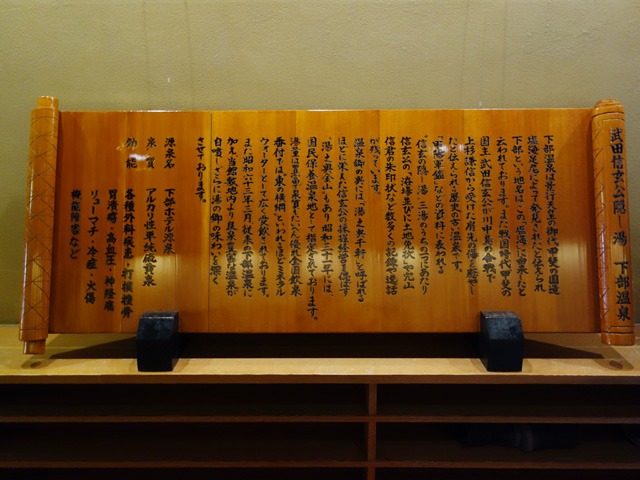 武田信玄公隠し湯 下部温泉
下部温泉は景行天皇の御代、甲斐の国造
塩海足尼によって発見されたと伝えられ
下部という地名はこの塩海に由来したと
云われております。また戦国時代甲斐の
国主武田信玄公が川中島の合戦で
上杉謙信から受けた肩先の傷を癒やし
たと伝えられる歴史の家の温泉です。
「甲陽軍鑑」などの資料に表われる
"信玄の隠し湯"三湯のうちの一つにあたり
信玄公の「浴客並びに土地免状」や穴山
信君の朱印状など数多くの記録や逸話
が残っています。
温泉郷の奥には「湯之奥千軒」と呼ばれる
ほどに栄えた信玄公の採掘経営の遺跡
「湯之奥金山」もあり昭和三十一年には、
国民保養温泉地として指定を受けております。
湯量は豊富で良質しかも優秀全国飲泉
番付では「東の横綱」といわれるほどミネラル
ウォーターとして広く愛飲されております。
また昭和六十三年一月、従来の下部温泉に
加え当館敷地内より良質な高温源泉が
自噴し、さらに"湯の郷"の味わいを深く
させております。
源泉名 下部ホテル源泉
泉質 アルカリ性単純硫黄泉
効能 各種外科疾患・打撲捻骨
胃潰瘍・高血圧・神経痛
リューマチ・冷症・火傷
機能障害など